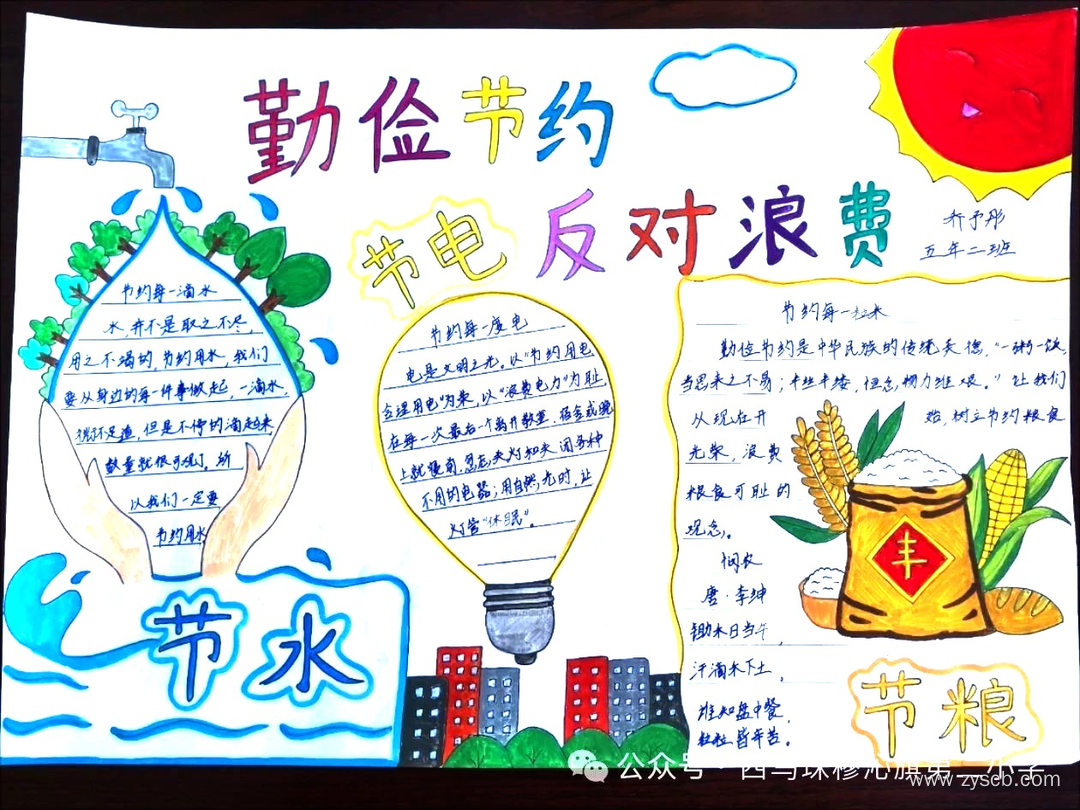 勤俭节约
反对浪费
乔予彤
五年二班
节约每一滴水
水,并不是取之不尽,
用之不竭的,节约用水,我们
要从身边的每一件事做起,一滴水,
微不足道,但是不停的滴起来
数量就很可观了,所
以我们一定要
节约用水
节水
节电
节约每一度电
电是文明之光。以"节约用电
合理用电"为荣,以"浪费电力"为耻,
在每一次最后一个离开教室、宿舍或晚
上就寝前,勿忘关灯和关闭各种
不用的电器;用自然光时,让
灯管"休眠"。
节约每一粒米
勤俭节约是中华民族的传统美德,"一粥一饭,
当思来之不易;半丝半缕,恒念物力维艰。"让我们
从现在开始,树立节约粮食
光荣,浪费
粮食可耻的
观念。
悯农
唐·李绅
锄禾日当午,
汗滴禾下土,
谁知盘中餐,
粒粒皆辛苦。
丰
节粮
公众号·西乌珠穆沁旗第二小学
www.zyscb.com